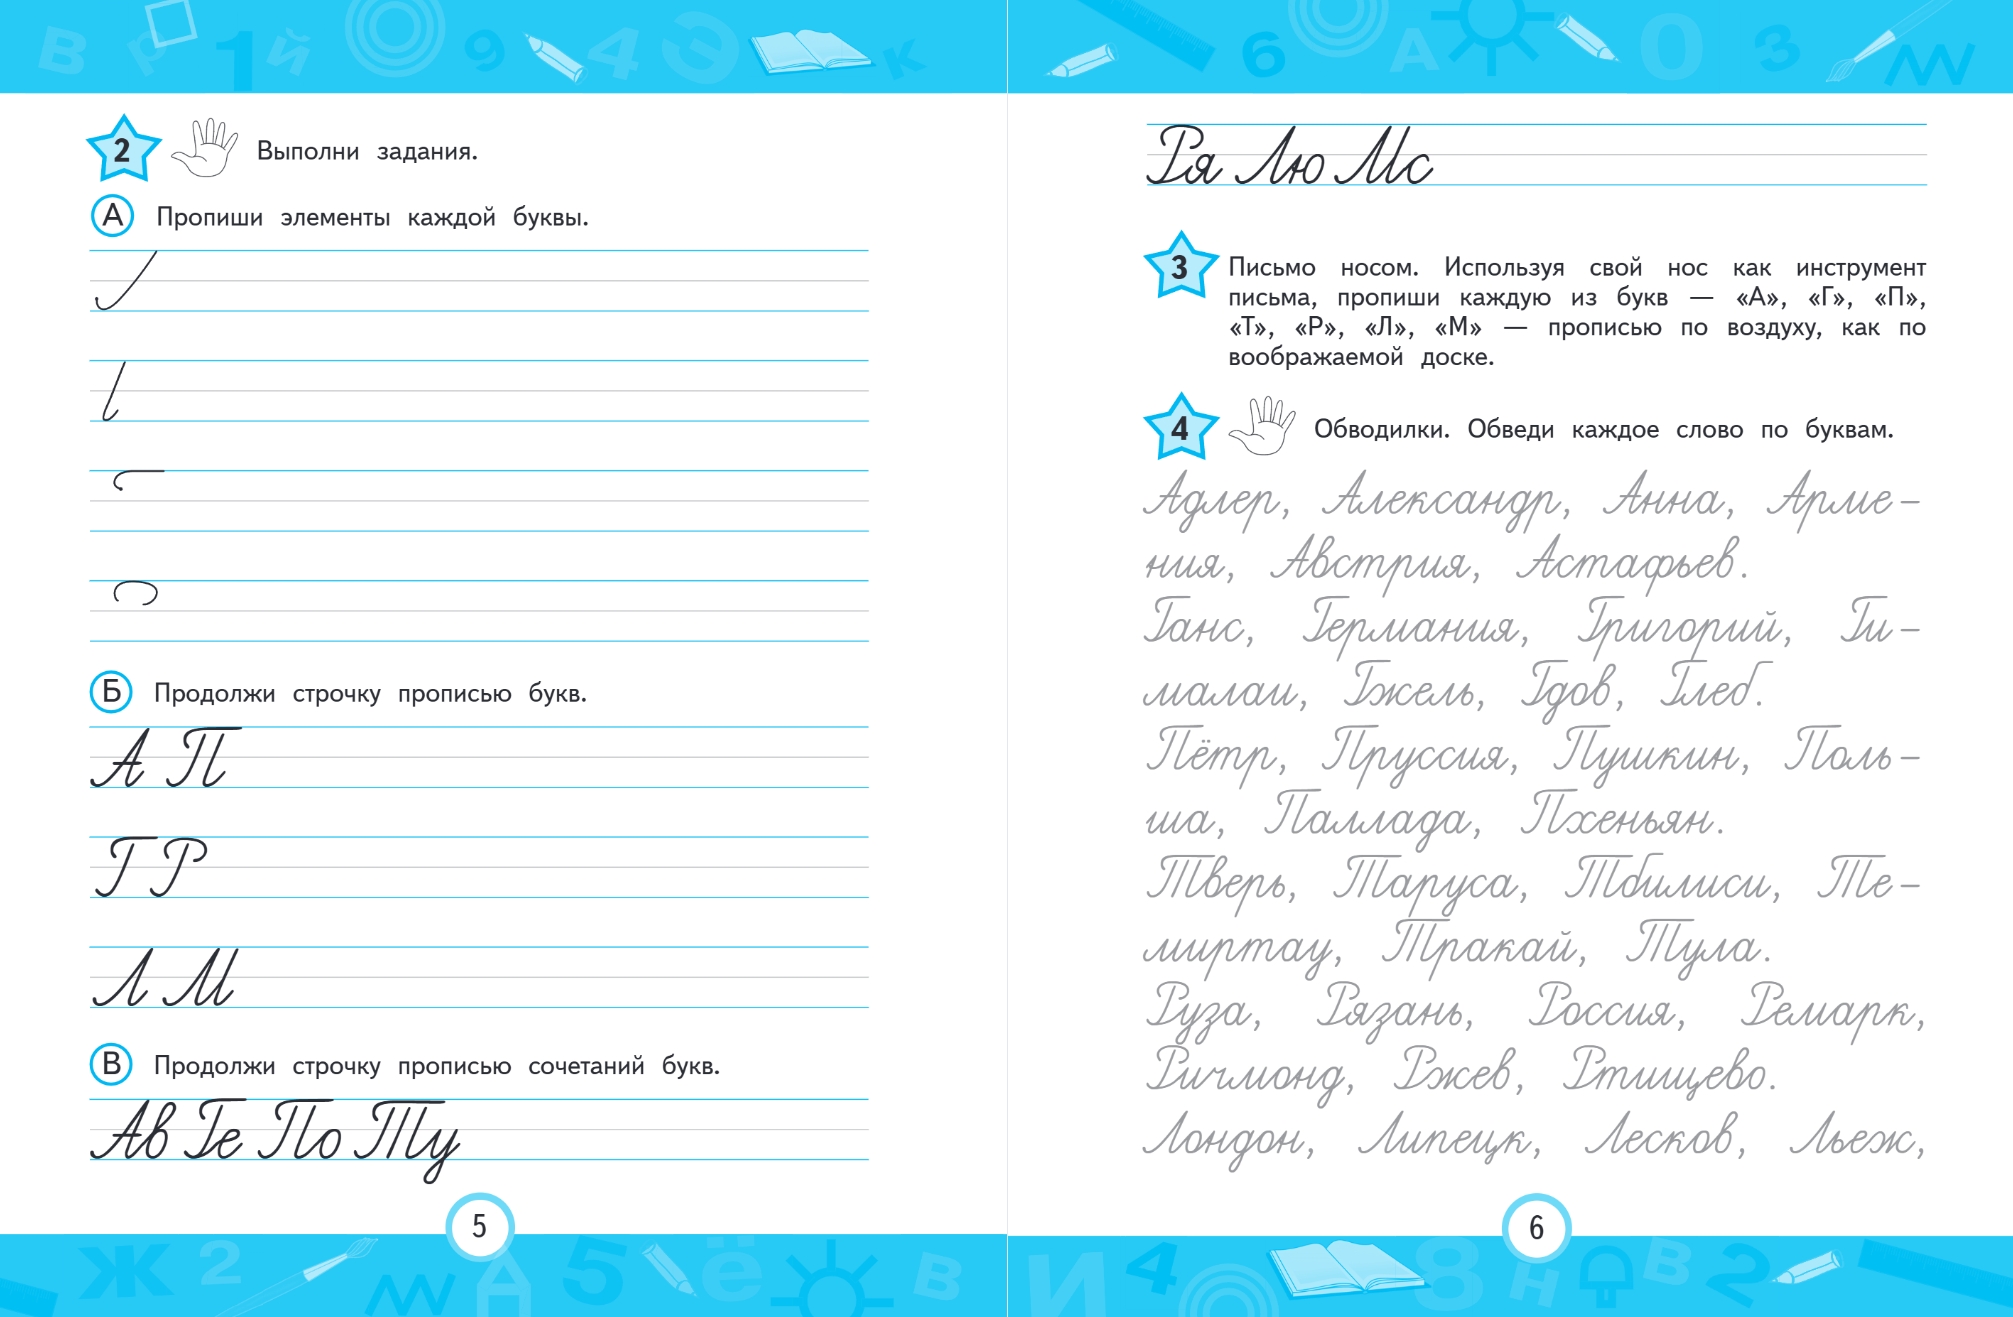 2 Выполни задания.
А Пропиши элементы каждой буквы.
Б Продолжи строчку прописью букв.
А П
Г Р
Л М
В Продолжи строчку прописью сочетаний букв.
Ав Ге По Ту
5
Ря Лю Мс
3 Письмо носом. Используя свой нос как инструмент
письма, пропиши каждую из букв — «А», «Г», «П»,
«Т», «Р», «Л», «М» — прописью по воздуху, как по
воображаемой доске.
4 Обводилки. Обведи каждое слово по буквам.
Адлер, Александр, Анна, Арме–
ния, Австрия, Астафьев.
Ганс, Германия, Григорий, Ги–
малаи, Гжель, Гдов, Глеб.
Пётр, Пруссия, Пушкин, Поль–
ша, Паллада, Пхеньян.
Тверь, Таруса, Тбилиси, Те–
миртау, Тракай, Тула.
Руза, Рязань, Россия, Ремарк,
Ричмонд, Ржев, Ртищево.
Лондон, Липецк, Лесков, Льеж,
6